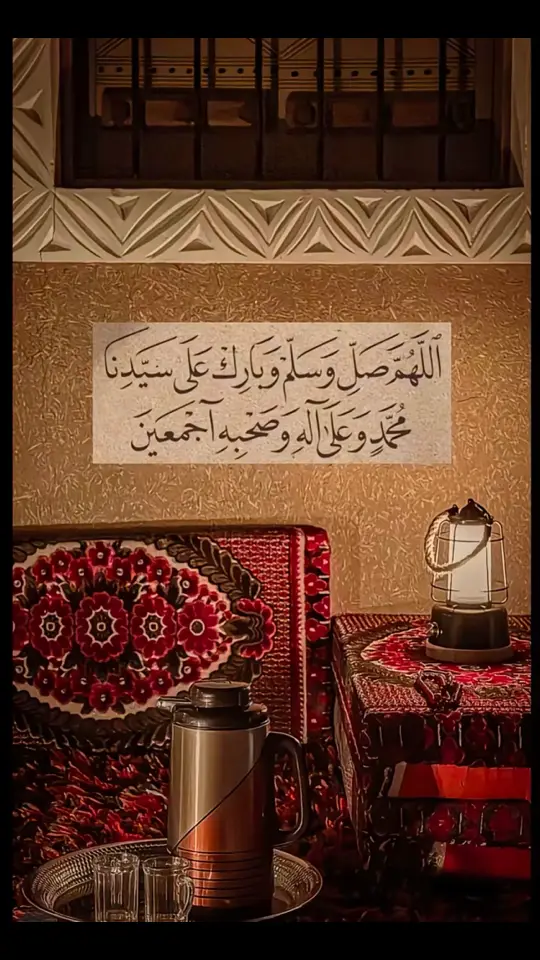 ٱللَّهُمَّ صَلِّ وَسَلِّمْ وَبَارِكْ عَلَى سَيِّدِنَا
مُحَمَّدٍ وَعَلَى آلِهِ وَصَحْبِهِ آجْمَعِينَ